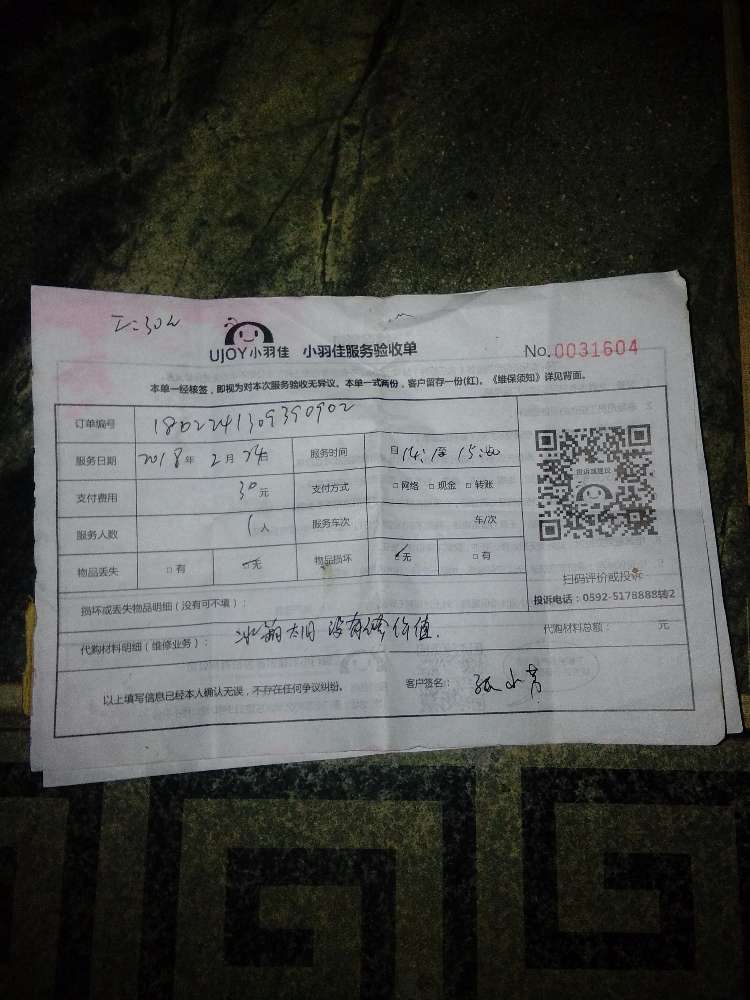 UJOY小羽佳 小羽佳服务验收单 No.0031604
本单一经核签，即视为对本次服务验收无异议。本单一式两份，客户留存一份(红)。《维保须知》详见背面。
订单编号 1802241309390902
服务日期 2018年2月24日 服务时间 自14: 至15:
支付费用 30元 支付方式 □网络 □现金 □转账
服务人数 1人 服务车次 车/次
物品丢失 □有 □无 物品损坏 □无 □有
投诉或建议
扫码评价或投诉
投诉电话：0592-5178888转2
损坏或丢失物品明细（没有可不填）：
代购材料明细（维修业务）： 冰箱太旧 没有修价值. 代购材料总额： 元
以上填写信息已经本人确认无误，不存在任何争议纠纷。 客户签名： 张小芳